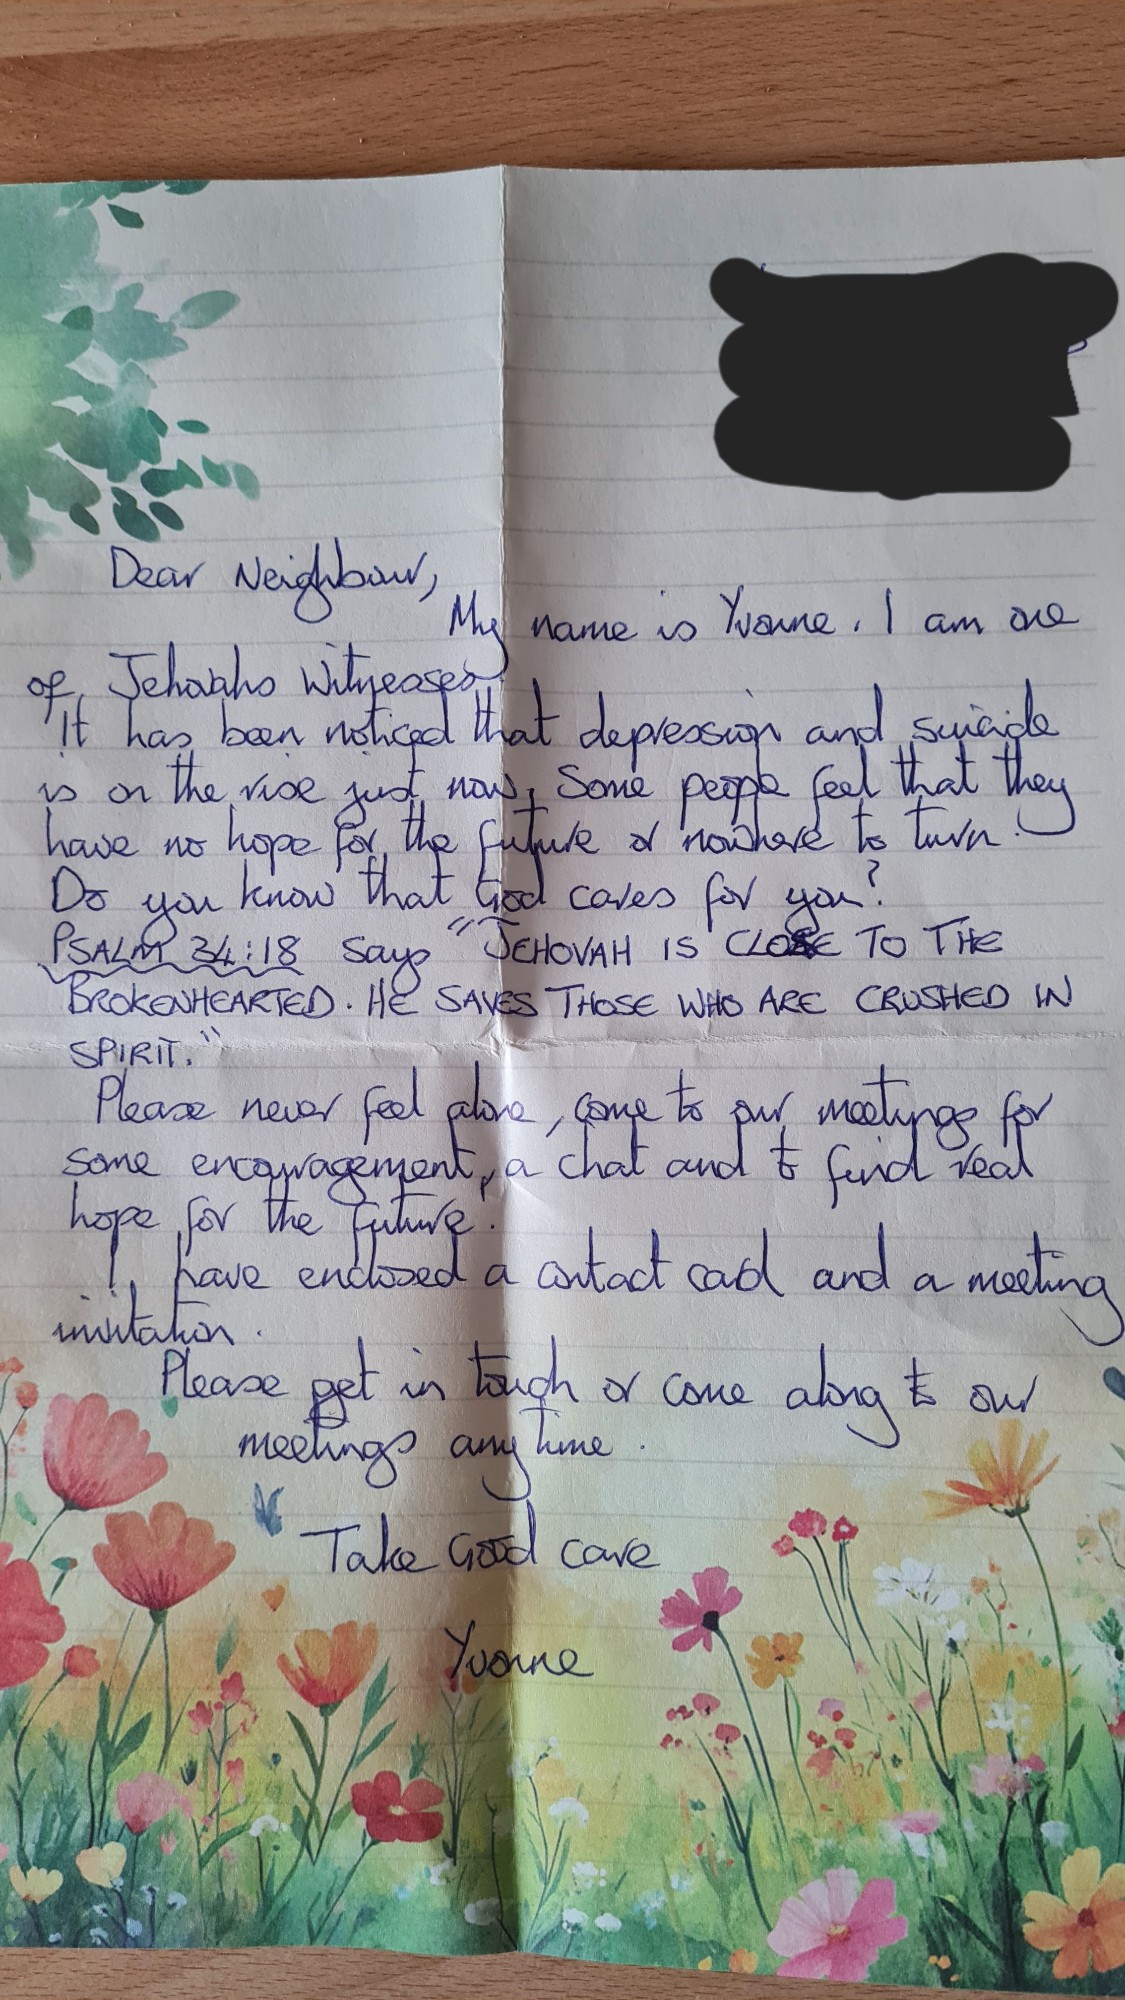 Dear Neighbour,
My name is Yvonne. I am one
of Jehovahs Witnesses.
It has been noticed that depression and suicide
is on the rise just now. Some people feel that they
have no hope for the future or nowhere to turn.
Do you know that God cares for you?
PSALM 34:18 says "JEHOVAH IS CLOSE TO THE
BROKENHEARTED. HE SAVES THOSE WHO ARE CRUSHED IN
SPIRIT."
Please never feel alone, come to our meetings for
some encouragement, a chat and to find real
hope for the future.
I have enclosed a contact card and a meeting
invitation.
Please get in touch or come along to our
meetings anytime.
Take Good care
Yvonne